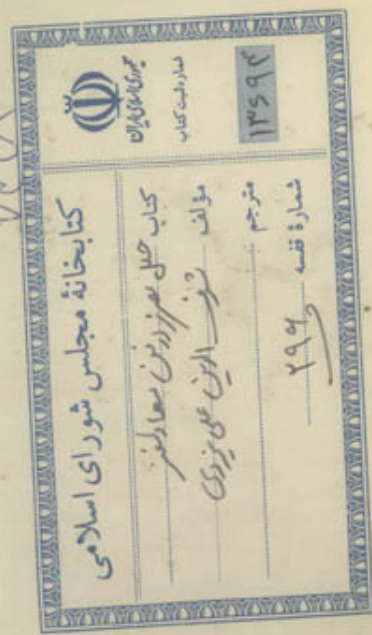 جمهوری اسلامی ایران
شماره ثبت کتاب
۱۳۶۹۴
کتابخانهٔ مجلس شورای اسلامی
کتاب حلل مطرز در فن معما و لغز
مؤلف شرف الدین علی یزدی
مترجم
شمارهٔ قفسه ۲۹۶